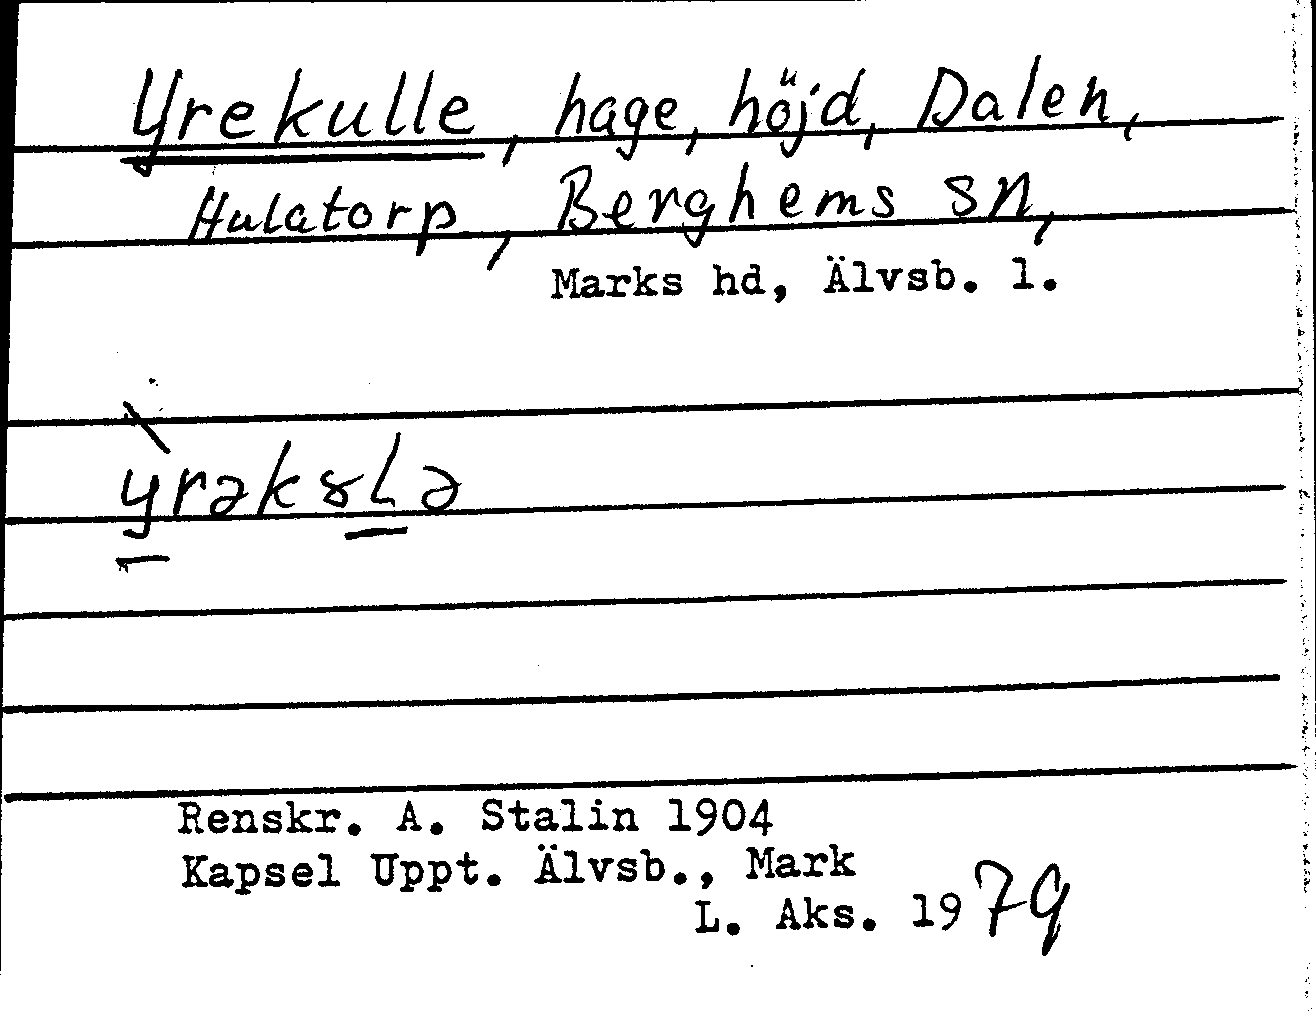 Yrekulle, hage, höjd, Dalen,
Hulatorp, Berghems sn,
Marks hd, Älvsb. l.
ỳ̱rəkꝸḺə
Renskr. A. Stalin 1904
Kapsel Uppt. Älvsb., Mark
L. Aks. 1979